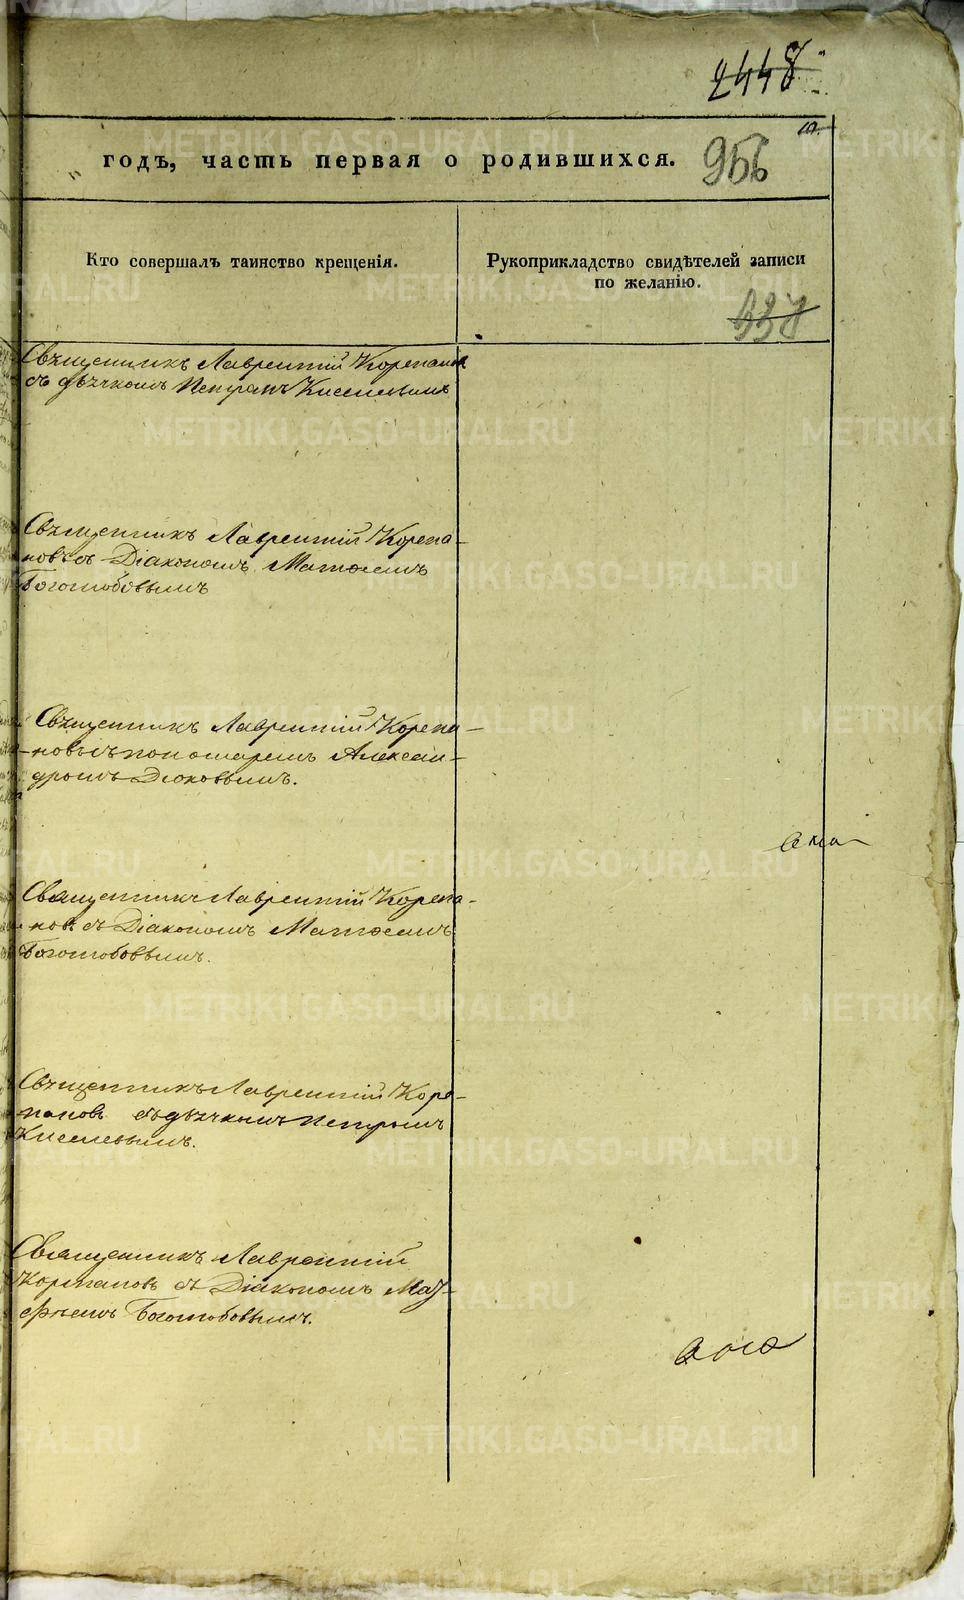 2448
годъ, часть первая о родившихся.
956
Кто совершалъ таинство крещенія.
Рукоприкладство свидѣтелей записи
по желанію.
338
Священникъ Лаврентій Корепановъ
съ дьячкомъ Петромъ Киселевымъ
Священникъ Лаврентій Корепа-
новъ съ Діакономъ Матѳеемъ
Боголюбовымъ
Священникъ Лаврентій Корепа-
новъ съ пономаремъ Алексан-
дромъ Дюковымъ.
Священникъ Лаврентій Корепа-
новъ съ Діакономъ Матѳеемъ
Боголюбовымъ.
Священникъ Лаврентій Коре-
пановъ съ дьячкомъ Петромъ
Киселевымъ.
Священникъ Лаврентій
Корепановъ съ Діакономъ Мат-
ѳеемъ Боголюбовымъ.
METRIKI.GASO-URAL.RU